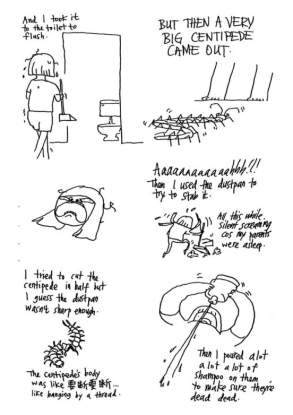 And I took it
to the toilet to
flush.
BUT THEN A VERY
BIG CENTIPEDE
CAME OUT.
Aaaaaaaaaaaahhh!!!
Then I used the dustpan to
try to stab it.
All this while,
silent screaming
cos my parents
were asleep.
I tried to cut the
centipede in half but
I guess the dustpan
wasn't sharp enough.
The centipede's body
was like 要断要断...
like hanging by a thread.
Then I poured a lot
a lot a lot of
shampoo on them
to make sure they're
dead dead.